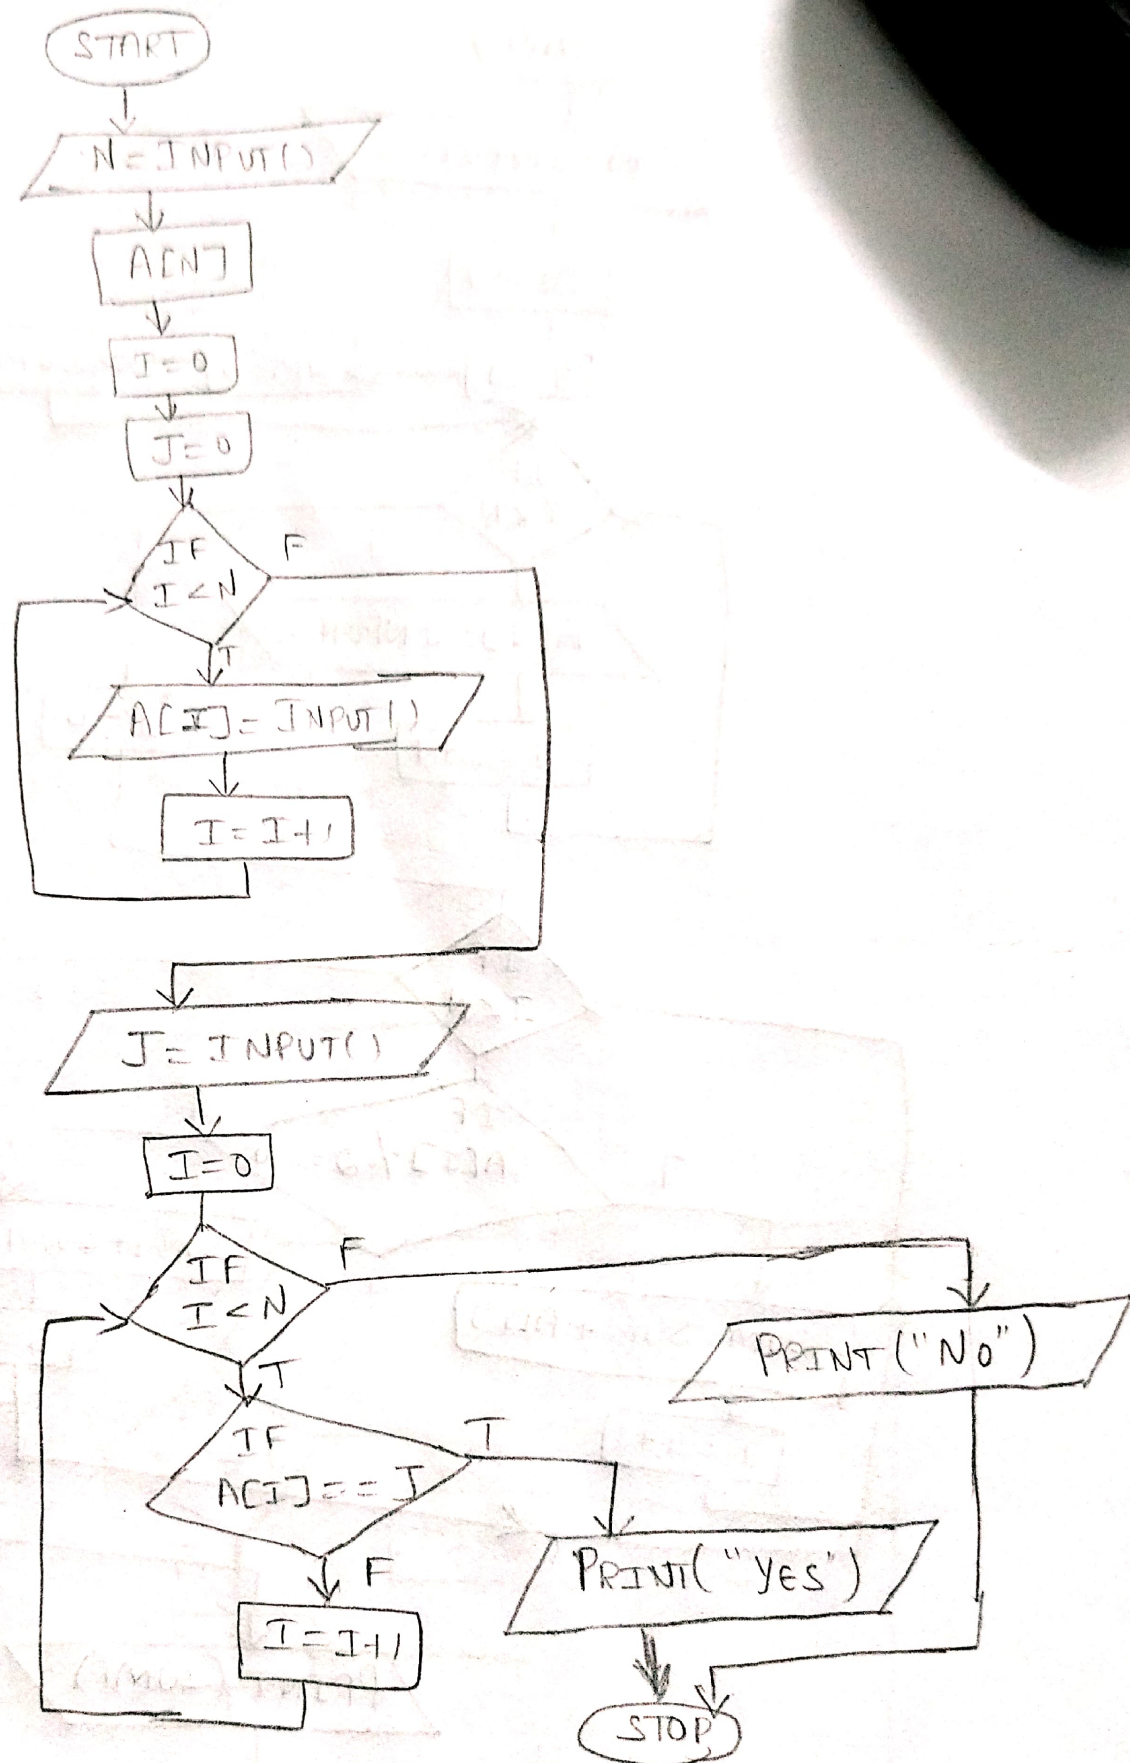 START
N=INPUT()
A[N]
I=0
J=0
IF
I<N
F
T
A[I]=INPUT()
I=I+1
J=INPUT()
I=0
IF
I<N
F
T
PRINT("NO")
IF
A[I]==J
T
F
PRINT("YES")
I=I+1
STOP